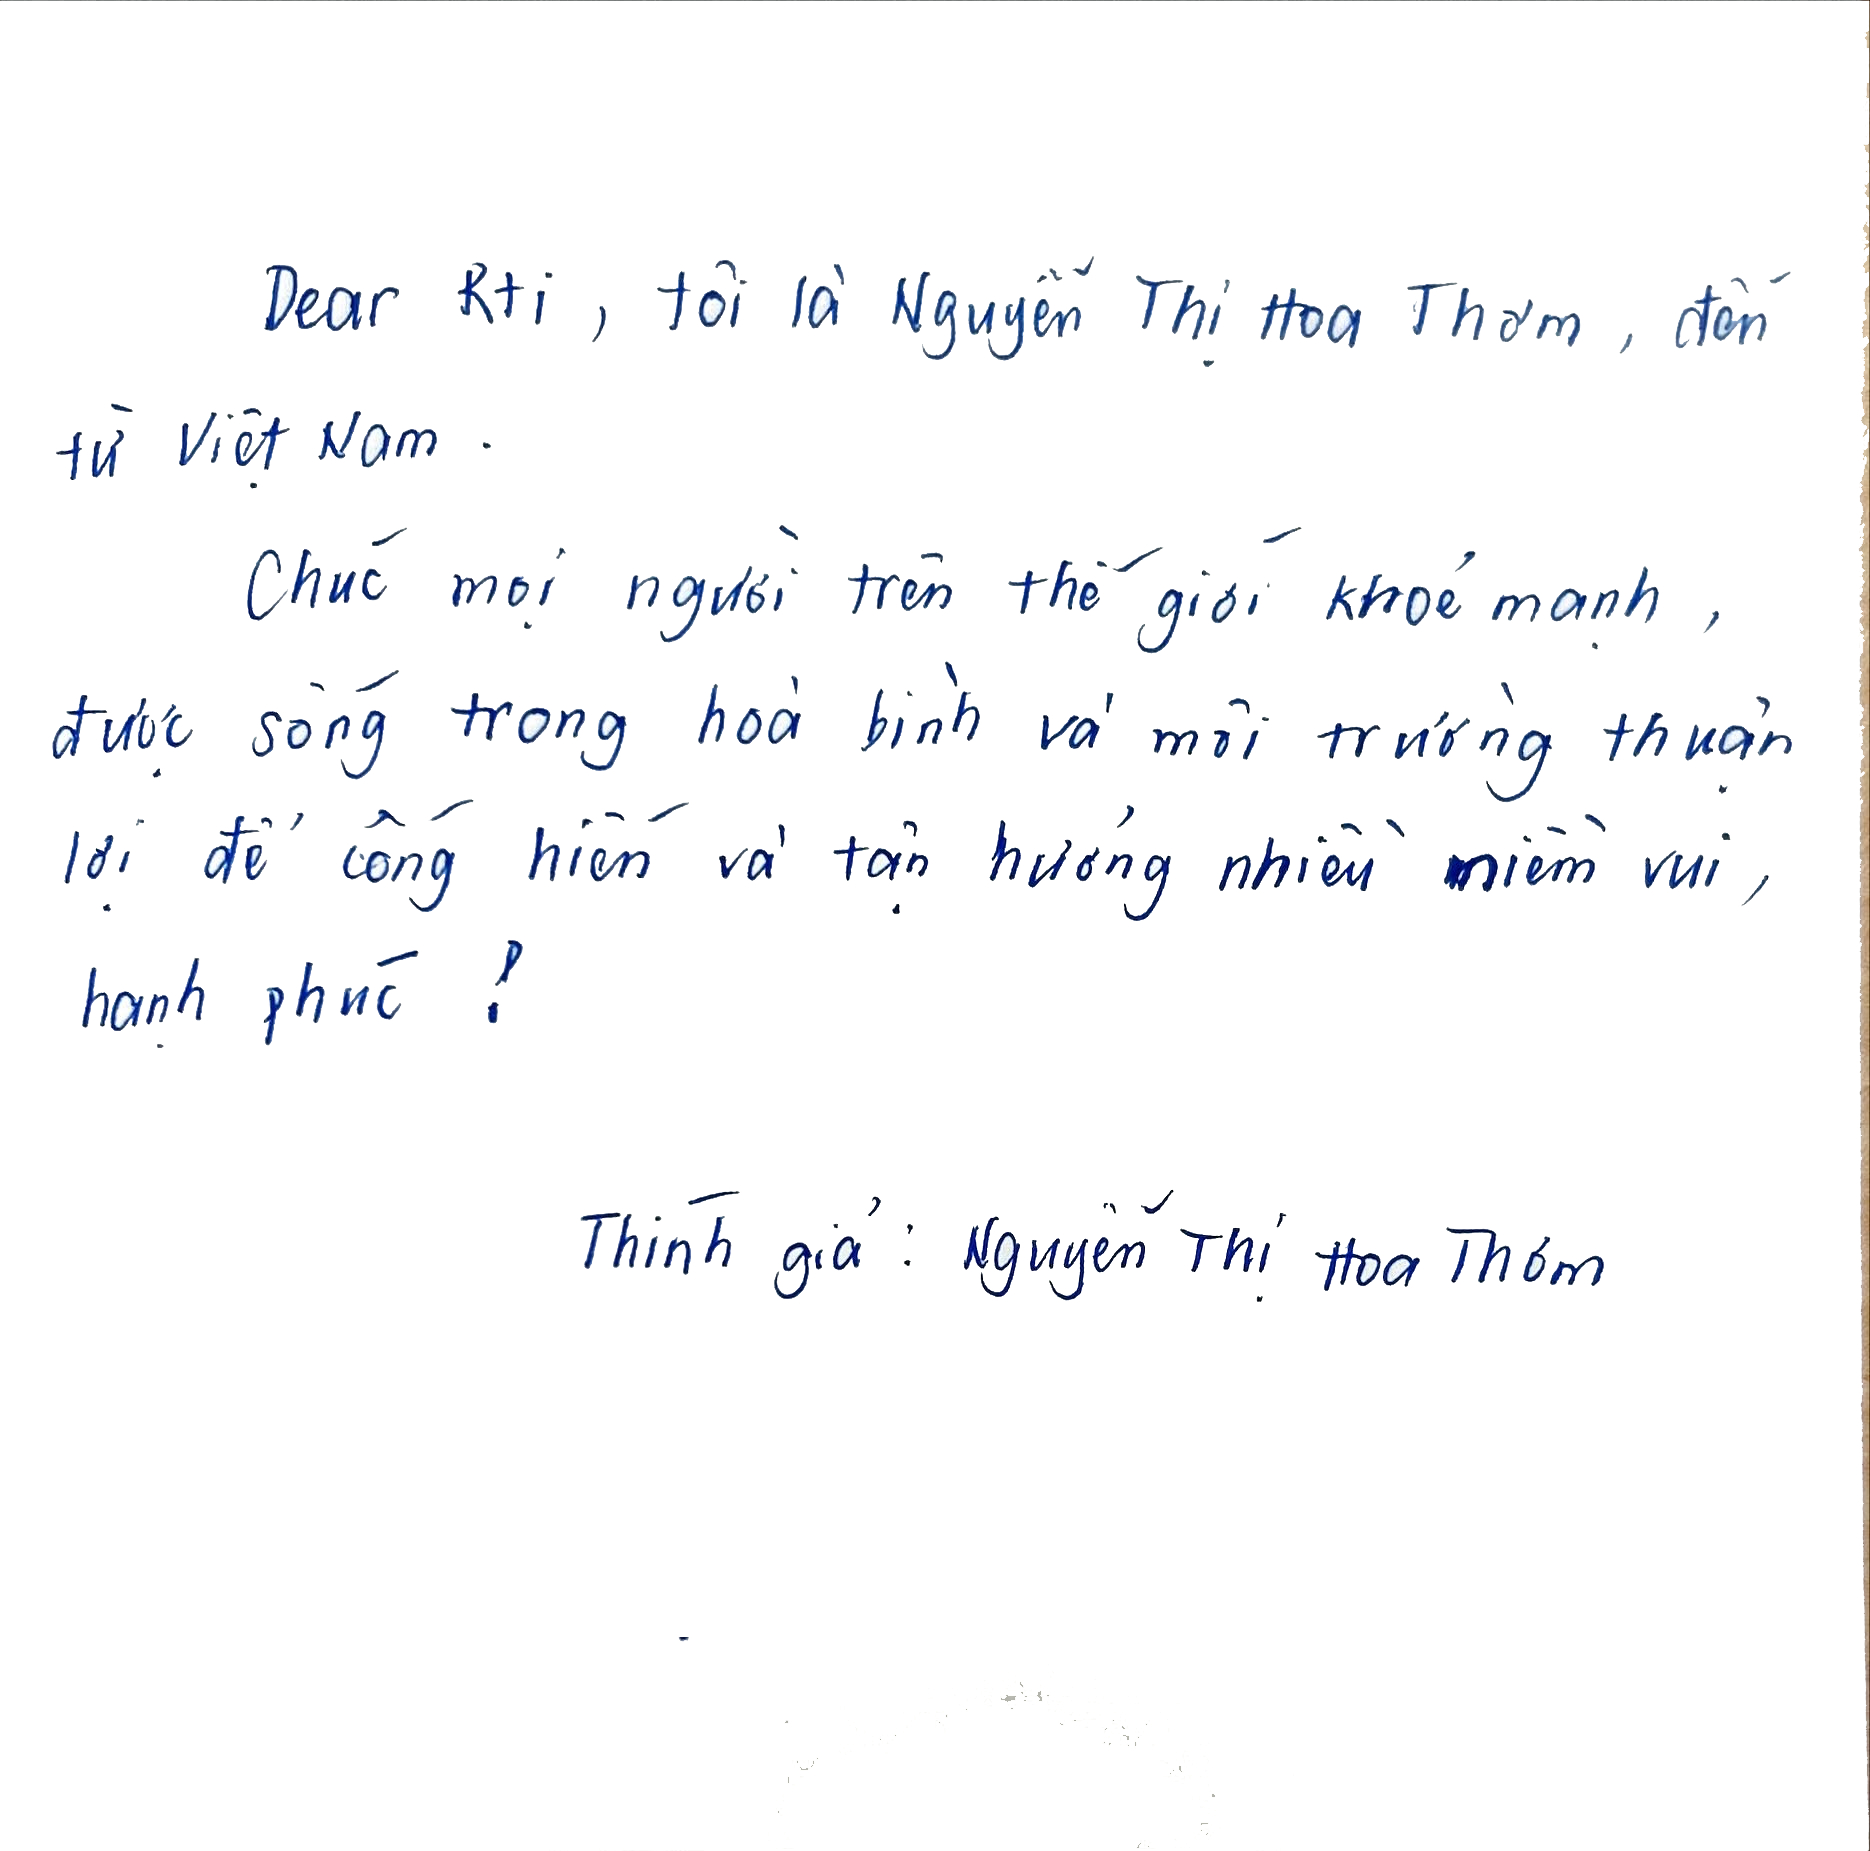 Dear Rti, tôi là Nguyễn Thị Hoa Thơm, đến
từ Việt Nam.
Chúc mọi người trên thế giới khoẻ mạnh,
được sống trong hoà bình và môi trường thuận
lợi để cống hiến và tận hưởng nhiều niềm vui,
hạnh phúc!
Thính giả: Nguyễn Thị Hoa Thơm